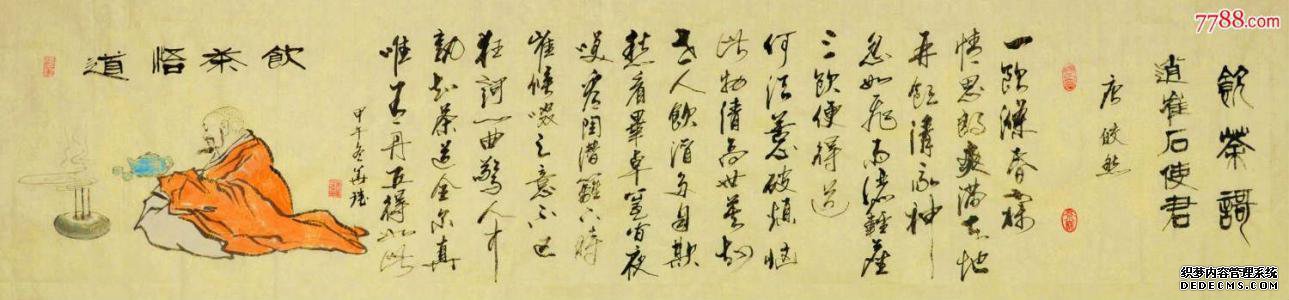 飲茶謌
誚崔石使君
唐 皎然
一飲滌昏寐
情思朗爽滿天地
再飲清我神
忽如飛雨灑輕塵
三飲便得道
何須苦心破煩惱
此物清高世莫知
世人飲酒多自欺
愁看畢卓甕間夜
笑看陶潛籬下時
崔侯啜之意不已
狂謌一曲驚人耳
孰知茶道全爾真
唯有丹丘得如此
甲午冬
飲茶悟道
7788.com
织梦内容管理系统
DEDECMS.COM